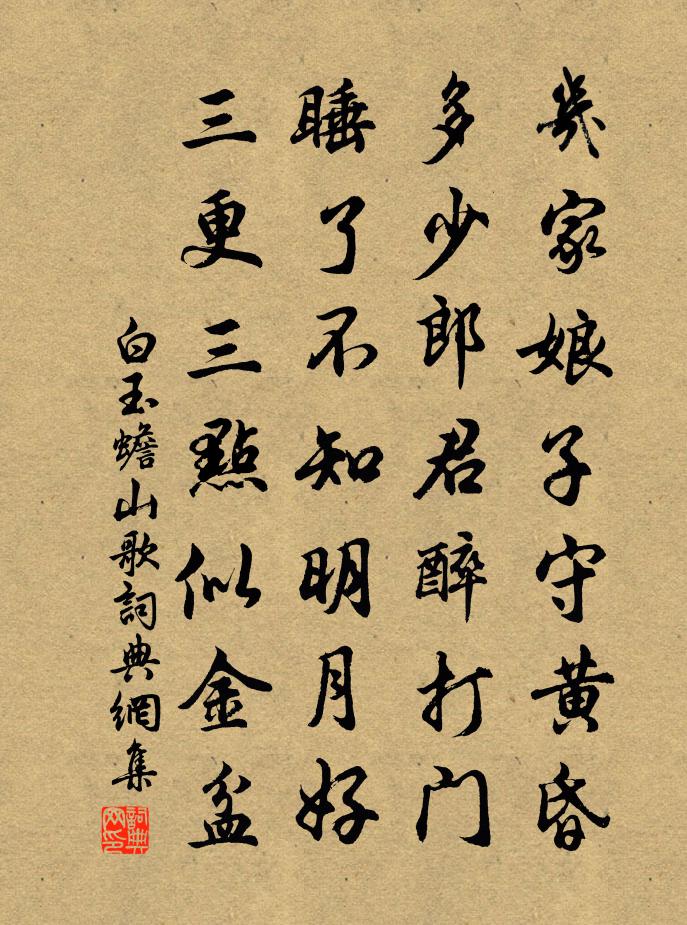 幾家娘子守黄昏
多少郎君醉打門
睡了不知明月好
三更三點似金盆
白玉蟾山歌詞典網集
詞典
网印